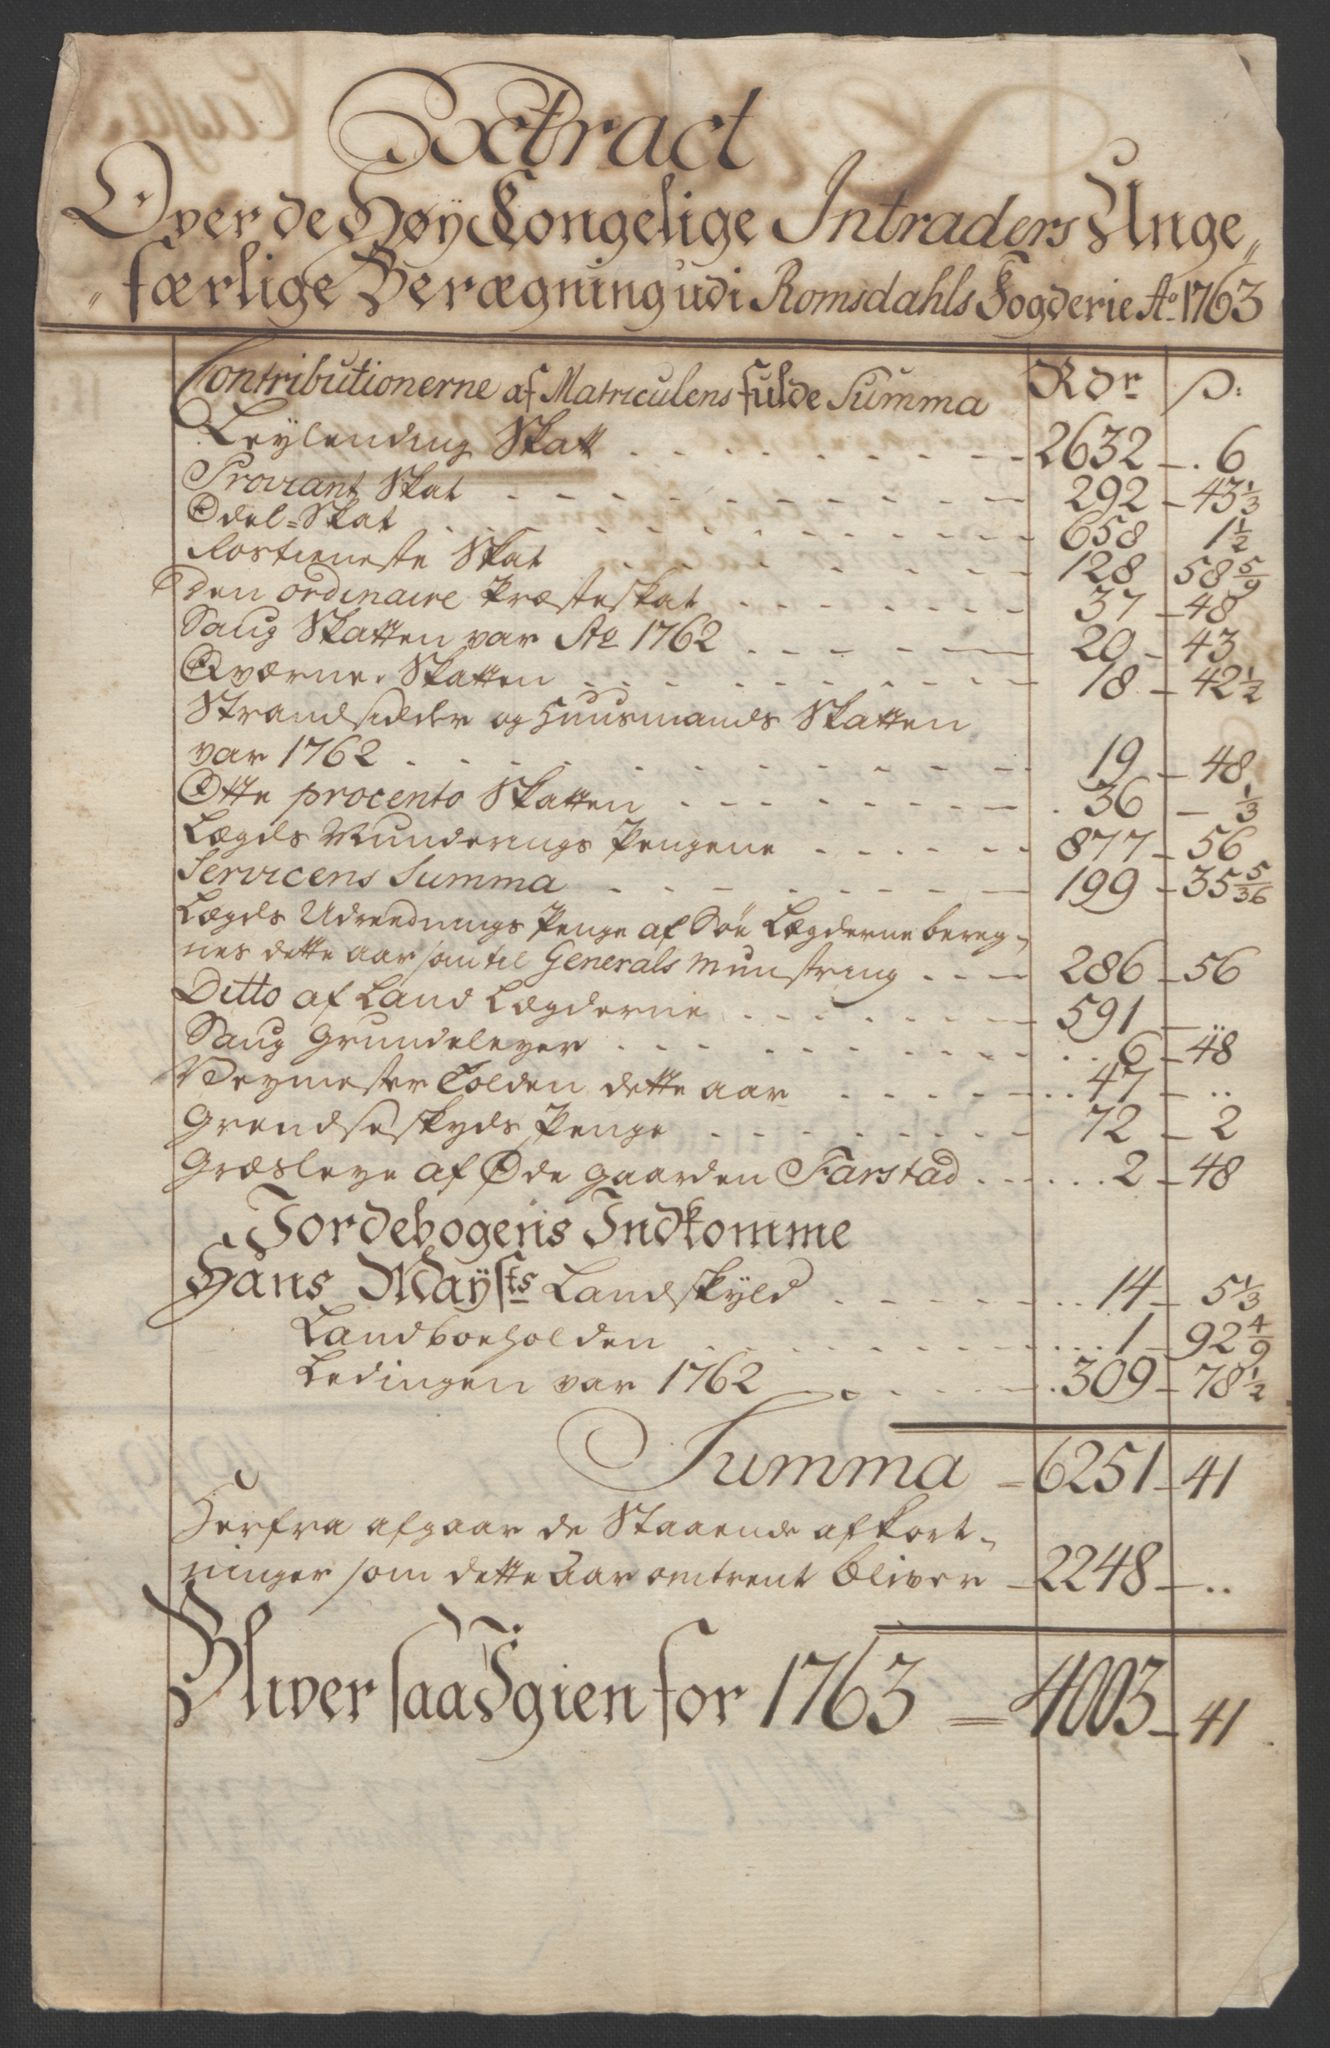 Extract
Over de Høy Kongelige Intraders Unge„
„færlige Berægning udi Romsdahls Fogderie Ao 1763
Contributionerne af Matriculens fulde Summa Rdr ß:
Leylending Skatt 2632 6
Proviant Skat 292 43 1/3
Odel-Skat 658 1 1/2
Rostieneste Skat 128 58 5/9
Den ordinaire Præsteskat 37 48
Saug Skatten var Ao 1762 20 43
Qværne Skatten 18 42 1/2
Strandsidder og Huusmands Skatten
var 1762 19 48
Otte procento Skatten 36 1/3
Lægds Munderings Pengene 877 56
Servicens Summa 199 35 5/36
Lægds Udreednings Penge af Søe Lægderne bereg-
nes dette aar som til Generals Munstring 286 56
Ditto af Land Lægderne 591 ..
Saug Grundeleyer 6 48
Veymester Tolden dette aar 47 ..
Grendseskyds Penge 72 2
Græsleye af Øde gaarden Farstad 2 48
Jordebogens Indkomme
Hans Maysts Landskyld 14 5 1/3
Landboeholden 1 92 4/9
Ledingen var 1762 309 78 1/2
Summa 6251 41
Herfra afgaar de Staaende afkort-
ninger som dette Aar omtrent bliver 2248 ..
Bliver saa Igien for 1763 = 4003 41